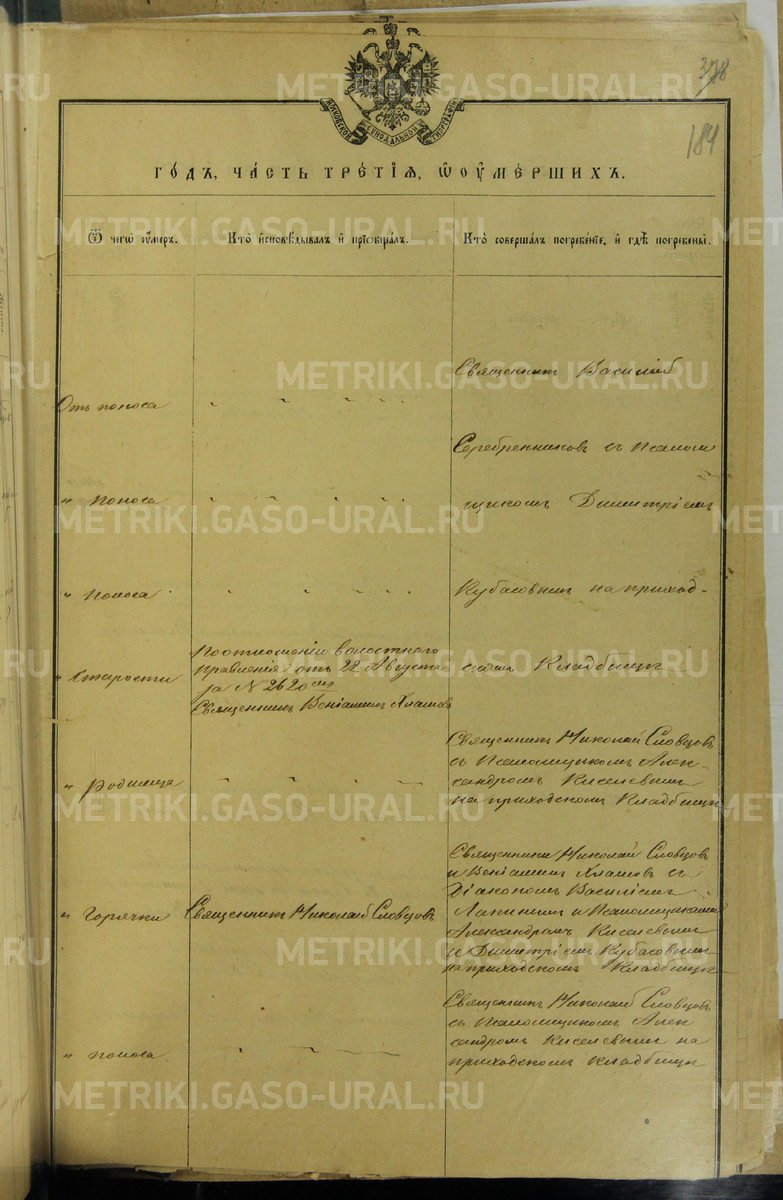 METRIKI.GASO-URAL.RU
378
184
МОСКОВСКОЙ СѴНОДАЛЬНОЙ ТИПОГРАФІИ
ГО́ДЪ, ЧА́СТЬ ТРЕ́ТІѦ, Ѡ҆ ОУ҆МЕ́РШИХЪ.
Ѿ чегѡ̀ ᲂу҆́меръ.
Кто̀ и҆сповѣ́дывалъ и҆ прїѡбща́лъ.
Кто̀ соверша́лъ погребе́нїе, и҆ гдѣ̀ погребены̀.
Священникъ Василій
Отъ поноса
Серебренниковъ съ псалом
" поноса
щикомъ Димитріемъ
" поноса
Кубасовымъ на приход-
" Старости
По отношенію волостнаго
правленія отъ 22 Августа
за № 2620
Священникъ Веніаминъ Хламовъ
скомъ кладбищѣ
" Родимца
Священникъ Николай Словцовъ
съ псаломщикомъ Алек-
сандромъ Киселевымъ
на приходскомъ кладбищѣ
" Горячки
Священникъ Николай Словцовъ
Священники Николай Словцовъ
и Веніаминъ Хламовъ съ
Діакономъ Василіемъ
Лапинымъ и псаломщиками
Александромъ Киселевымъ
и Димитріемъ Кубасовымъ
на приходскомъ кладбищѣ
" поноса
Священникъ Николай Словцовъ
съ псаломщикомъ Алек
сандромъ Киселевымъ на
приходскомъ кладбищѣ